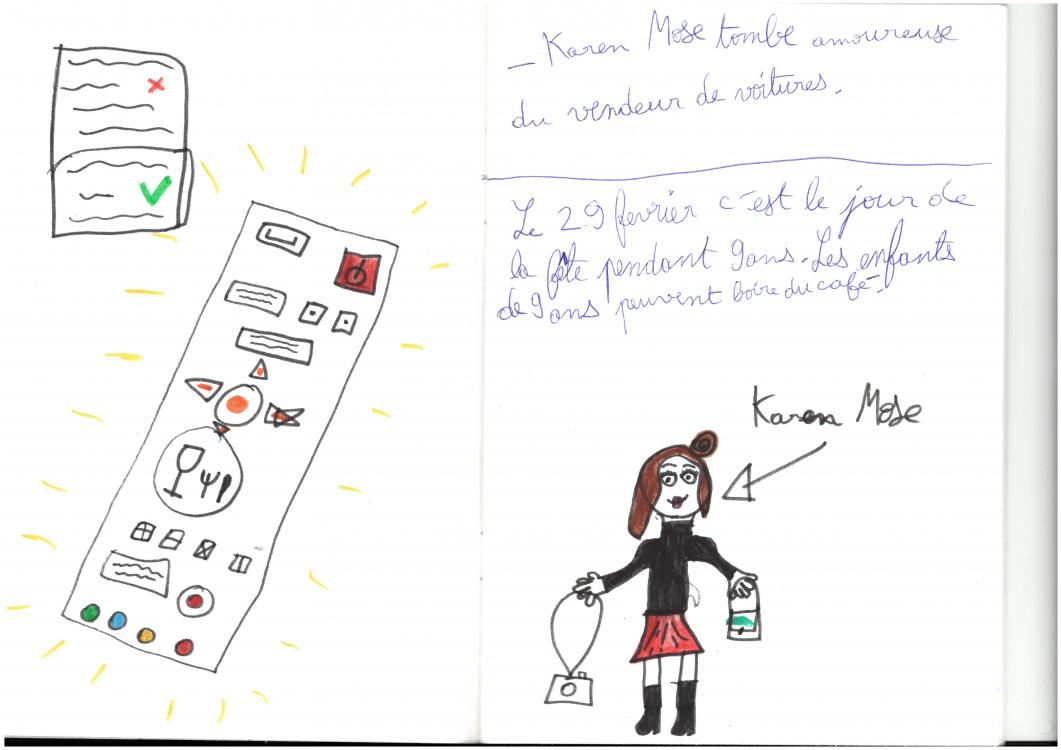 _ Karen Mose tombe amoureuse
du vendeur de voitures.
Le 29 fevrier c'est le jour de
la fête pendant 9ans. Les enfants
de 9 ans peuvent boire du café.
Karen Mose